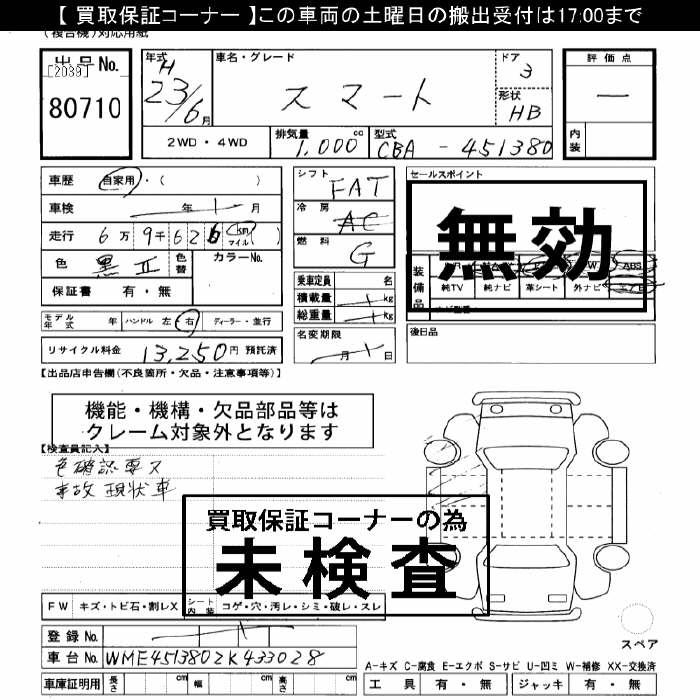 【 買取保証コーナー 】この車両の土曜日の搬出受付は17:00まで
(複合機)対応用紙
出品No.
[2039]
80710
年式 H 23/6 月
車名・グレード
スマート
ドア 3
形状 HB
評価点
―
内装
2WD・4WD
排気量 1,000 cc
型式 CBA - 451380
車歴 自家用・( )
車検 年 月
走行 6万9千626 (km マイル)
色 黒II 色替
カラーNo.
保証書 有・無
モデル年式 年 ハンドル 左 右 ディーラー・並行
リサイクル料金 13,250円 預託済
シフト FAT
冷房 AC
燃料 G
乗車定員 名
積載量 kg
総重量 kg
名変期限 月 日
セールスポイント
無効
装備品
ABS
純TV 純ナビ 革シート 外ナビ エアB
後日品
【出品店申告欄(不良箇所・欠品・注意事項等)】
機能・機構・欠品部品等は
クレーム対象外となります
【検査員記入】
色確認要ス
事故現状車
買取保証コーナーの為
未検査
FW キズ・トビ石・割レX シート内装 コゲ・穴・汚レ・シミ・破レ・スレ
登録No.
車台No. WME4513802K433028
車庫証明用 長さ cm 幅 cm 高さ cm
スペア
A-キズ C-腐食 E-エクボ S-サビ U-凹ミ W-補修 XX-交換済
工具 有・無 ジャッキ 有・無